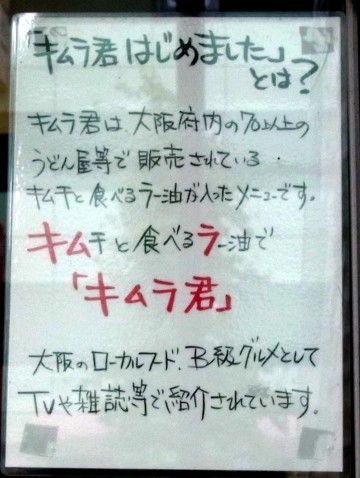 「キムラ君はじめました」
とは?
キムラ君は、大阪府内の70以上の
うどん屋等で販売されている
キムチと食べるラー油が入ったメニューです。
キムチと食べるラー油で
「キムラ君」
大阪のローカルフード、B級グルメとして
TVや雑誌等で紹介されています。